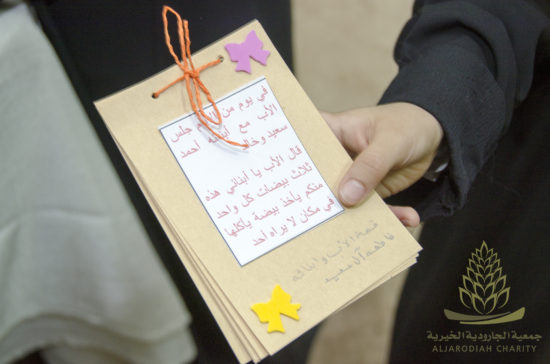 في يوم من الأيام جلس
الأب مع أبنائه أحمد
سعيد وخالد
قال الأب يا أبنائي هذه
ثلاث بيضات كل واحد
منكم يأخذ بيضة يأكلها
في مكان لا يراه أحد
قصة الأب وأبنائه
فاطمة آل سعيد
جمعية الجارودية الخيرية
ALJARODIAH CHARITY